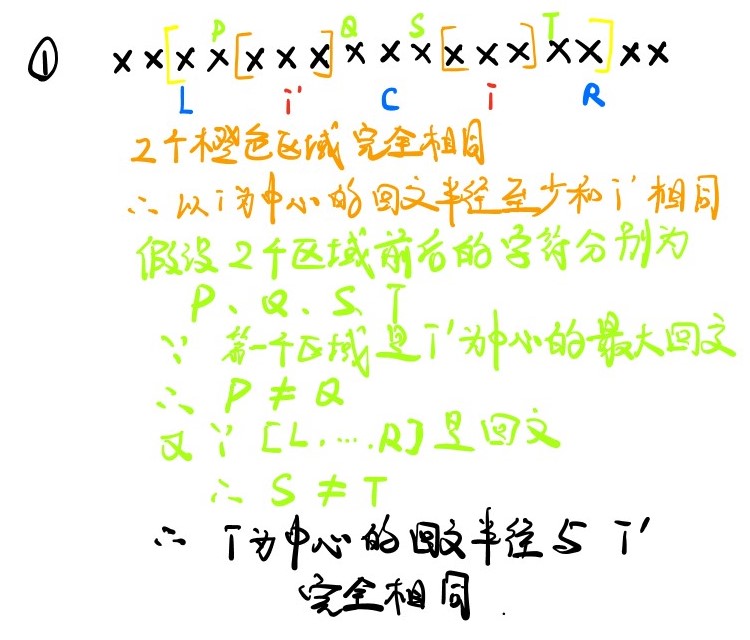 P Q S T
① x x [ x x [ x x x ] x x x [ x x x ] x x ] x x
L i' C i R
2个橙色区域完全相同
∴ 以i为中心的回文半径至少和i'相同
假设2个区域前后的字符分别为
P、Q、S、T
∵ 第一个区域是i'为中心的最大回文
∴ P ≠ Q
又∵ [L....R]是回文
∴ S ≠ T
∴ i为中心的回文半径与 i'
完全相同.